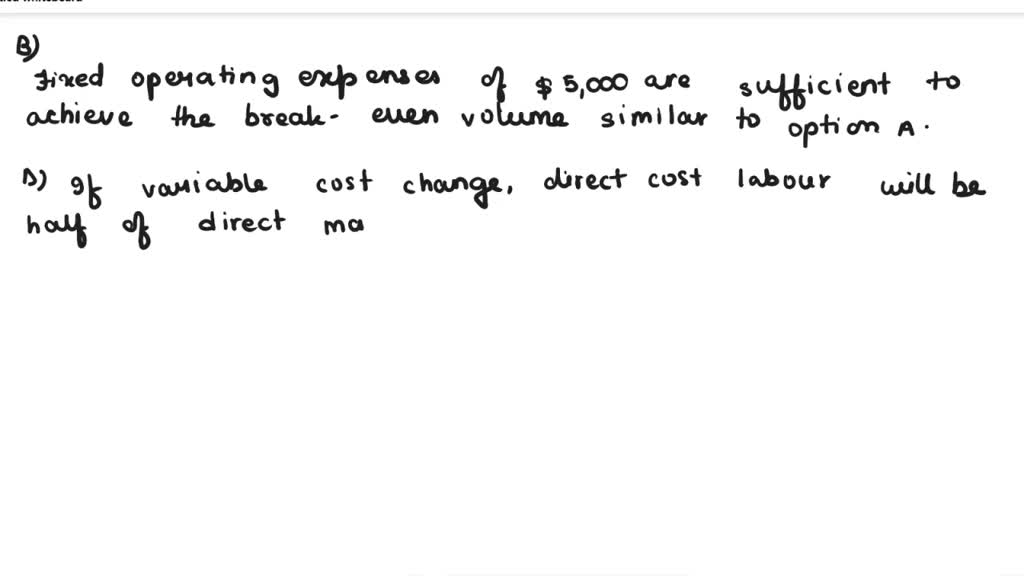 B)
Fixed operating expenses of $ 5,000 are sufficient to
achieve the break- even volume similar to option A.
D) If variable cost change, direct cost labour will be
half of direct ma